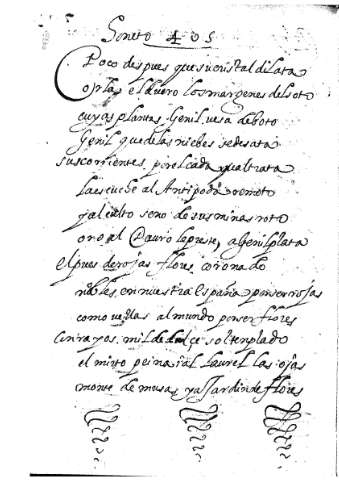 Soneto 405
Poco despues que su cristal dilata
Orla el Dauro los margenes del soto
cuyas plantas Genil vesa deboto
Genil que de las niebes se desata
sus corrientes por el cada qual trata
las escuche al Antipoda remoto
y al culto seno de sus minas roto
oro al Dauro le preste, al Genil plata
el pues de rojas flores coronado
nobles en nuestra españa por ser rojas
como vellas al mundo por ser flores
con rayos mil de dulce sol templado
el mirto peina i al Laurel las ojas
monte de musas, ya Jardin de flores